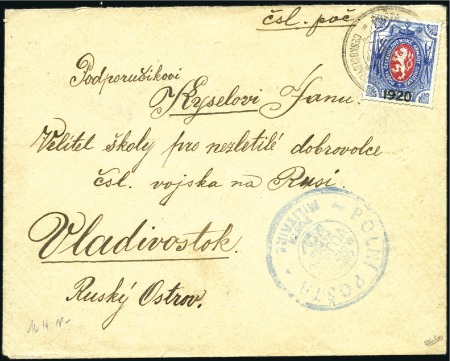 čsl. poč
Podporučikovi
Kyselovi Janu.
Velitel školy pro nezletilé dobrovolce
čsl. vojska na Rusi.
Vladivostok.
Ruský Ostrov.
1920
POLNÍ POŠTA